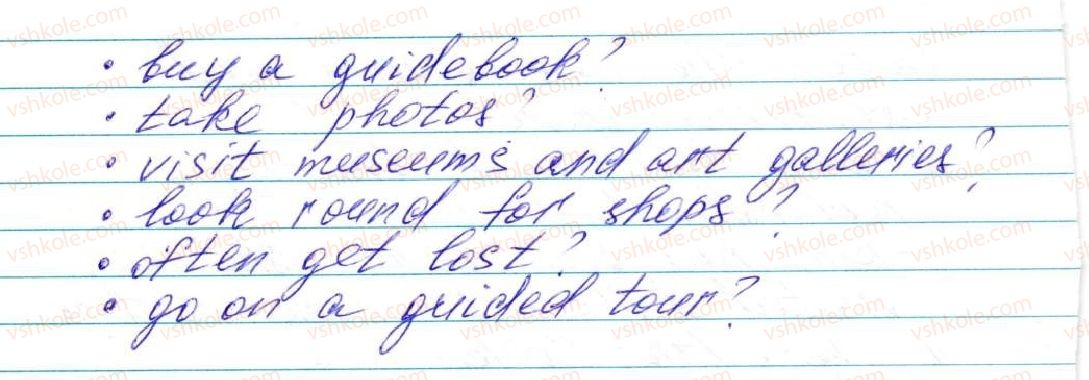 • buy a guidebook?
• take photos?
• visit museums and art galleries?
• look round for shops?
• often get lost?
• go on a guided tour?